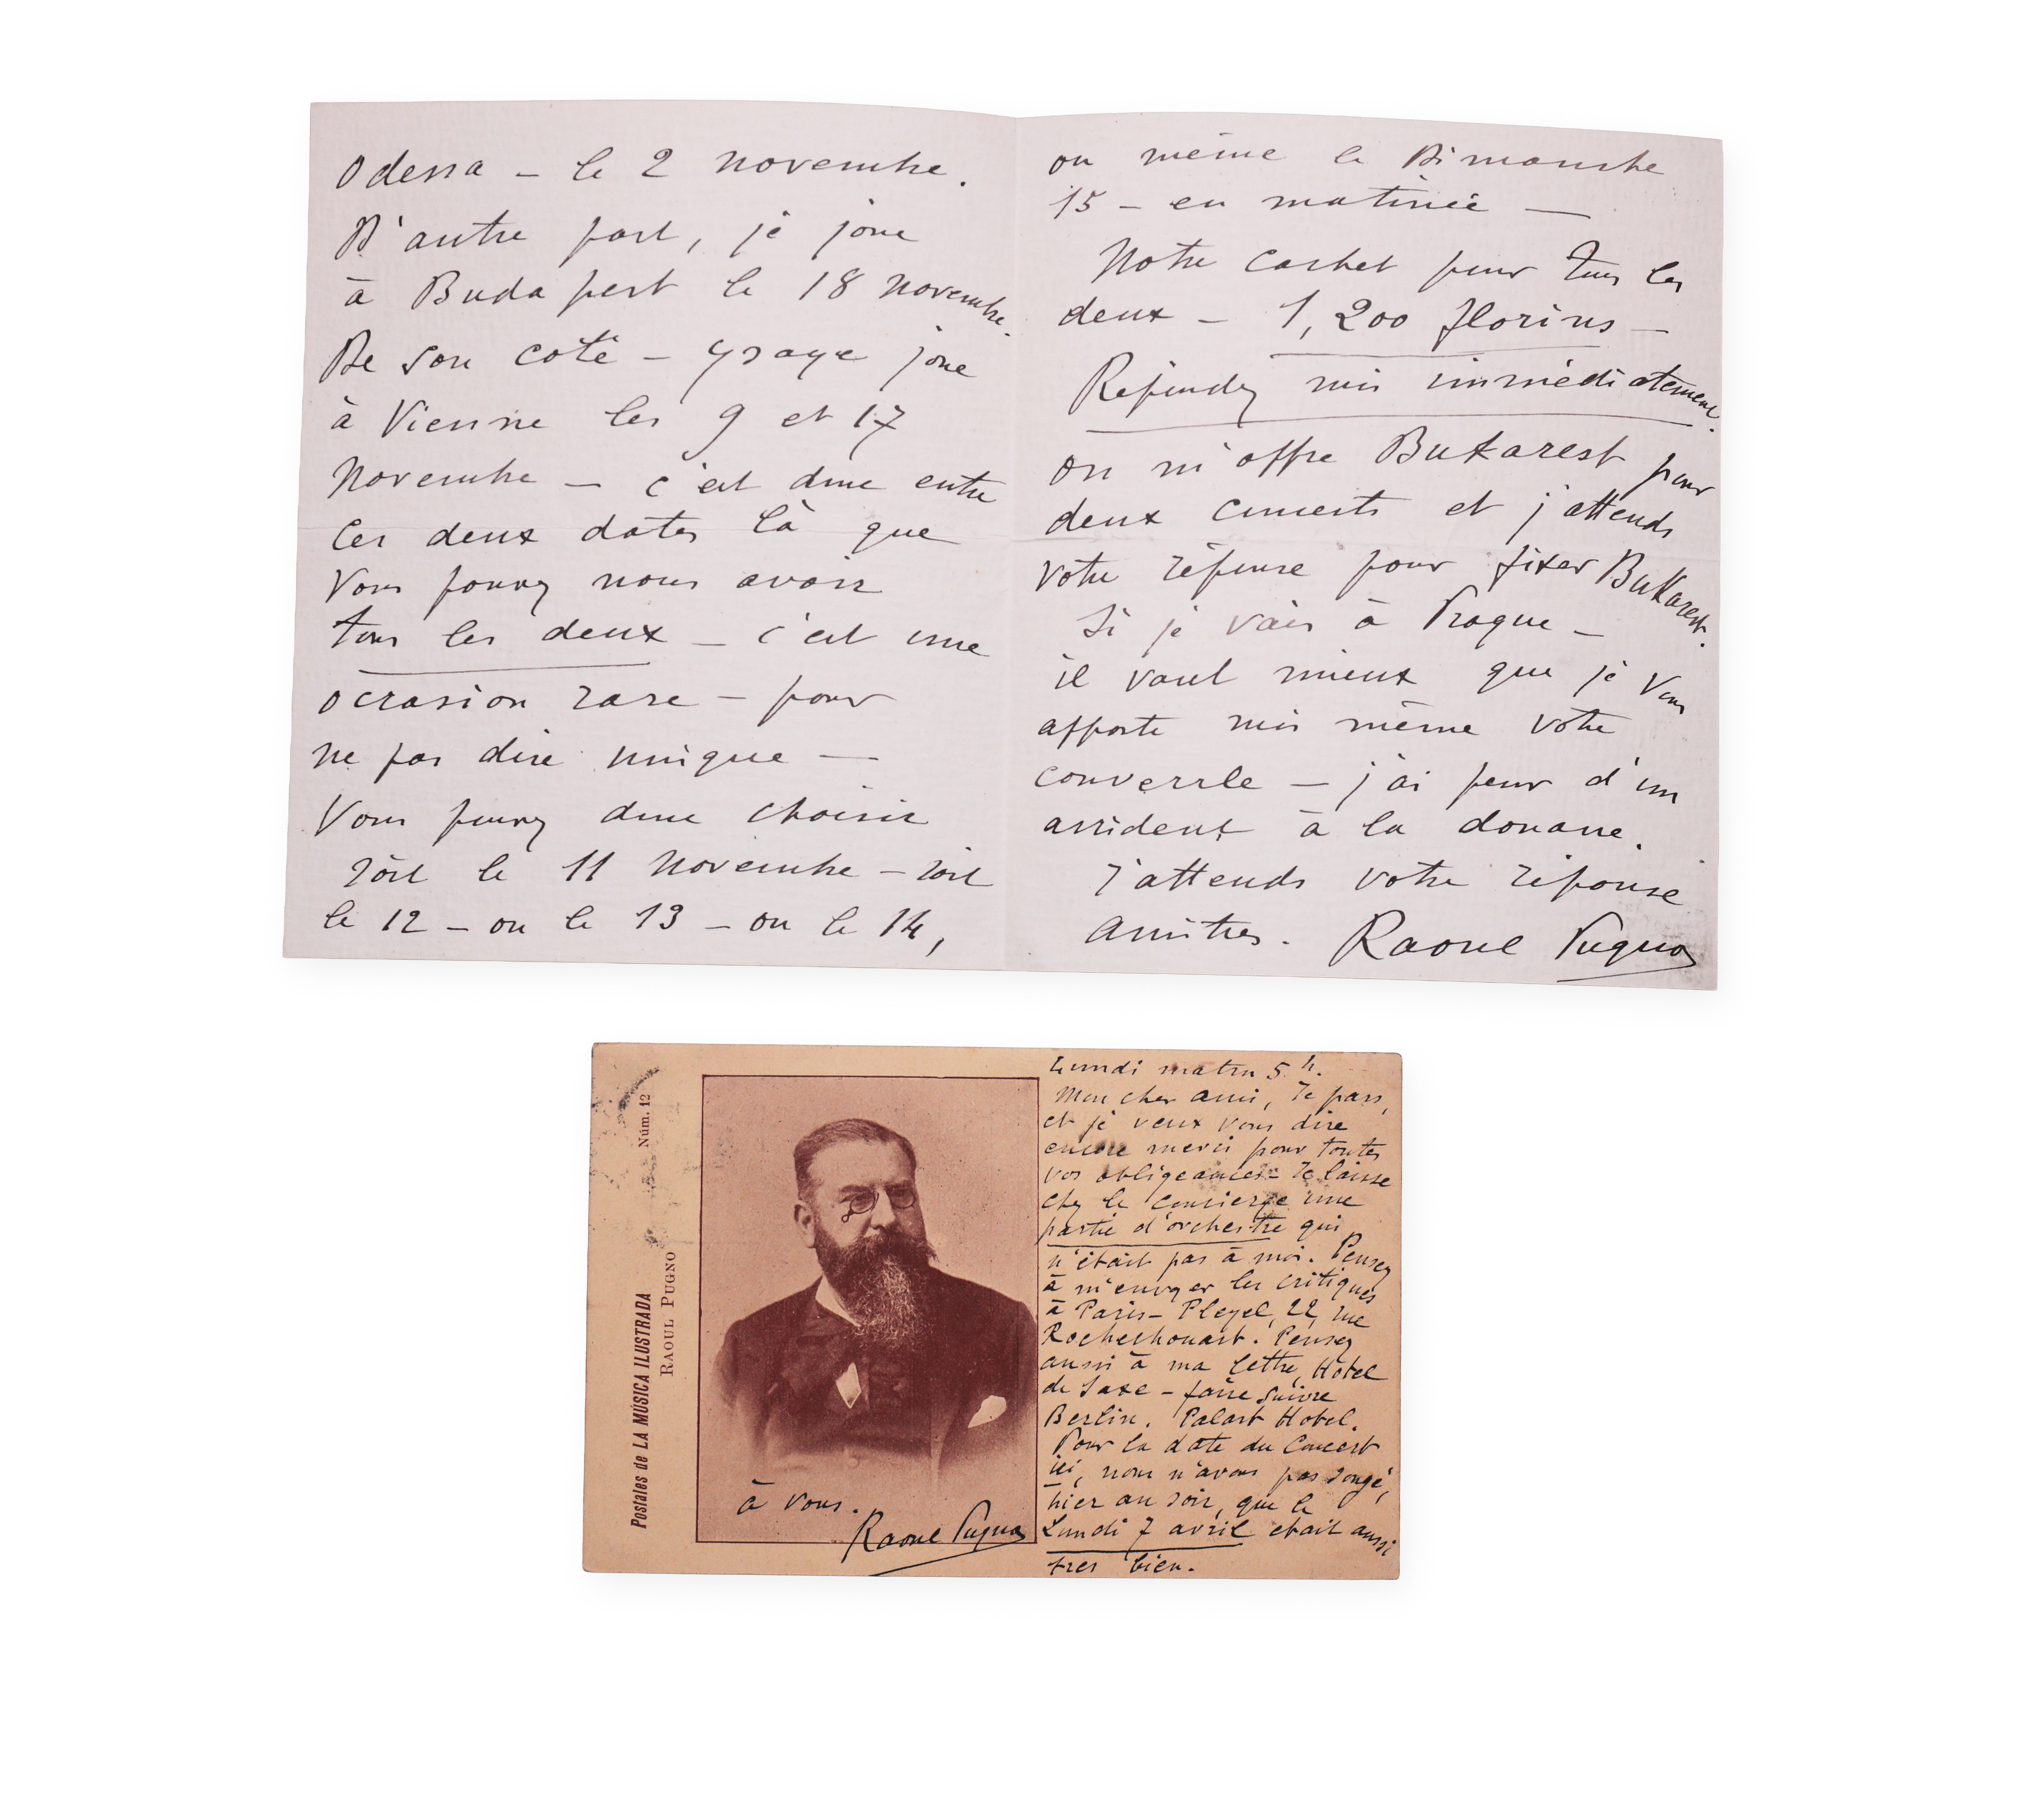 Odessa – le 2 novembre.
D'autre part, je joue
à Buda pest le 18 novembre.
De son coté – Ysaye joue
à Vienne les 9 et 17
novembre – c'est donc entre
ces deux dates là que
vous pouvez nous avoir
tous les deux – c'est une
occasion rare – pour
ne pas dire unique –
Vous pouvez donc choisir
soit le 11 novembre – soit
le 12 – ou le 13 – ou le 14,
ou même le Dimanche
15 – en matinée –
Notre cachet pour tous les
deux – 1,200 florins –
Répondez moi immédiatement.
on m'offre Bukarest pour
deux concerts et j'attends
votre réponse pour fixer Bukarest.
Si je vais à Prague –
il vaut mieux que je vous
apporte moi même votre
couvercle – j'ai peur d'un
accident à la douane.
J'attends votre réponse
Amitiés. Raoul Pugno
Postales de LA MÚSICA ILUSTRADA Núm. 12
RAOUL PUGNO
à vous.
Raoul Pugno
Lundi matin 5 h.
Mon cher ami, Je pars,
et je veux vous dire
encore merci pour toutes
vos obligeances – Je laisse
chez le concierge une
partie d'orchestre qui
n'était pas à moi. Pensez
à m'envoyer les critiques
à Paris – Pleyel, 22, rue
Rochechouart. Pensez
aussi à ma lettre, Hôtel
de Saxe – faire suivre
Berlin. Palast Hotel.
Pour la date du Concert
ici, nous n'avons pas songé,
hier au soir, que le
Lundi 7 avril était aussi
très bien.